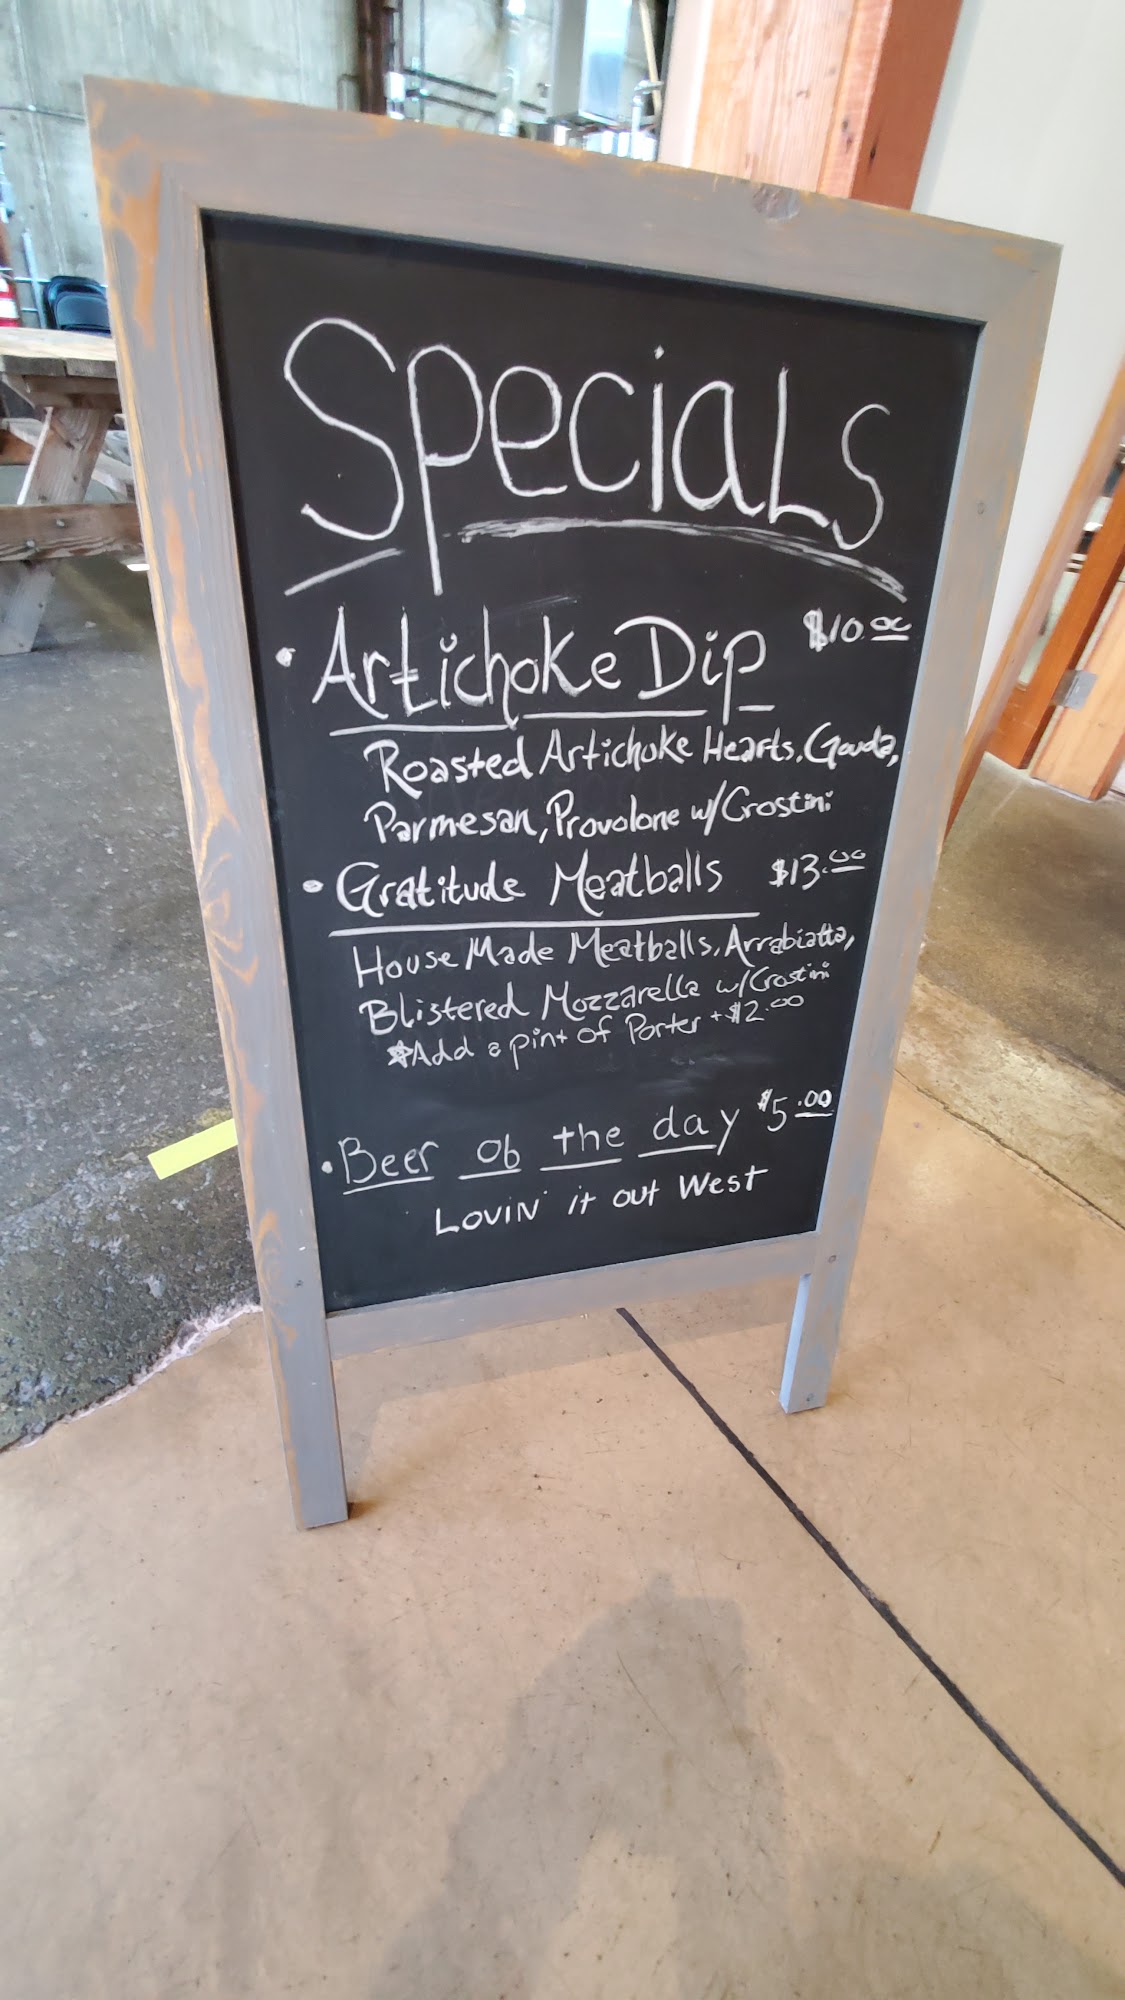 Specials
• Artichoke Dip $10.00
Roasted Artichoke Hearts, Gouda,
Parmesan, Provolone w/Crostini
• Gratitude Meatballs $13.00
House Made Meatballs, Arrabiatta,
Blistered Mozzarella w/Crostini
*Add a pint of Porter +$2.00
• Beer of the day $5.00
Lovin' it out West